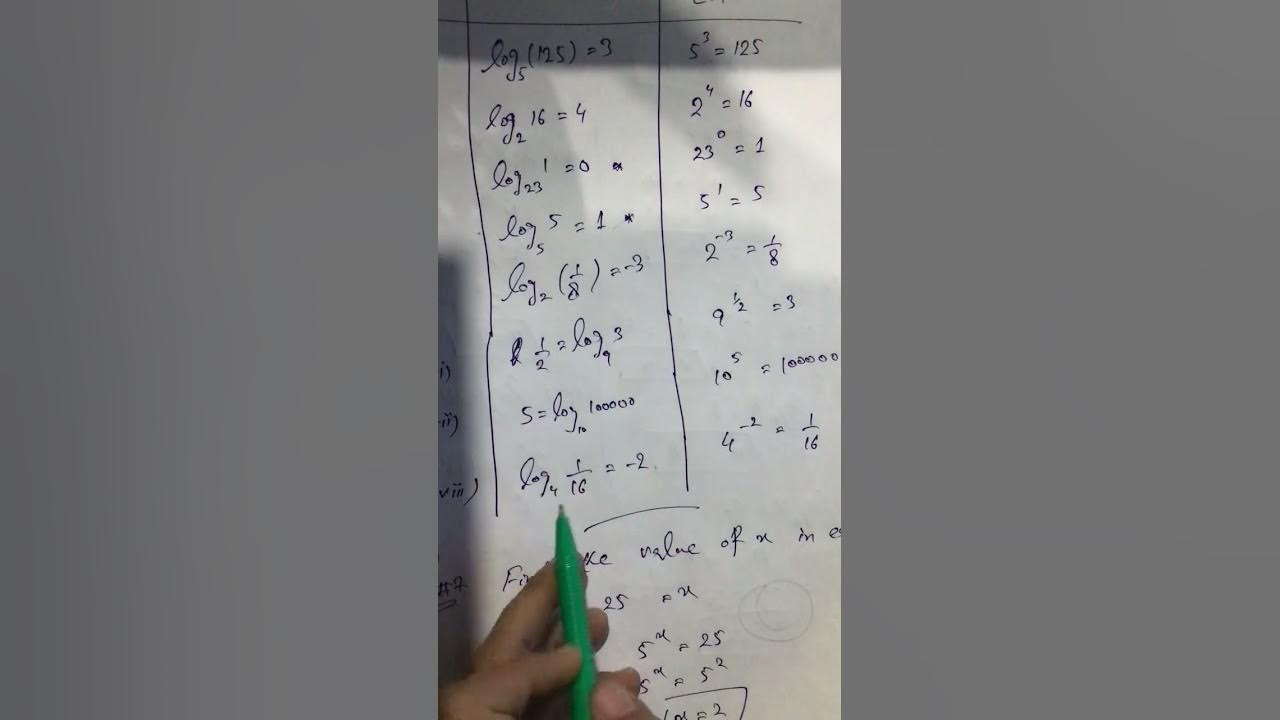 log₅(125) = 3 5³ = 125
log₂ 16 = 4 2⁴ = 16
log₂₃ 1 = 0 * 23⁰ = 1
log₅ 5 = 1 * 5¹ = 5
log₂(1/8) = -3 2⁻³ = 1/8
1/2 = log₉ 3 9^(1/2) = 3
i)
5 = log₁₀ 100000 10⁵ = 100000
ii)
log₄ 1/16 = -2 4⁻² = 1/16
viii)
value of x in
#7
25 = x
5ˣ = 25
5ˣ = 5²
x = 2